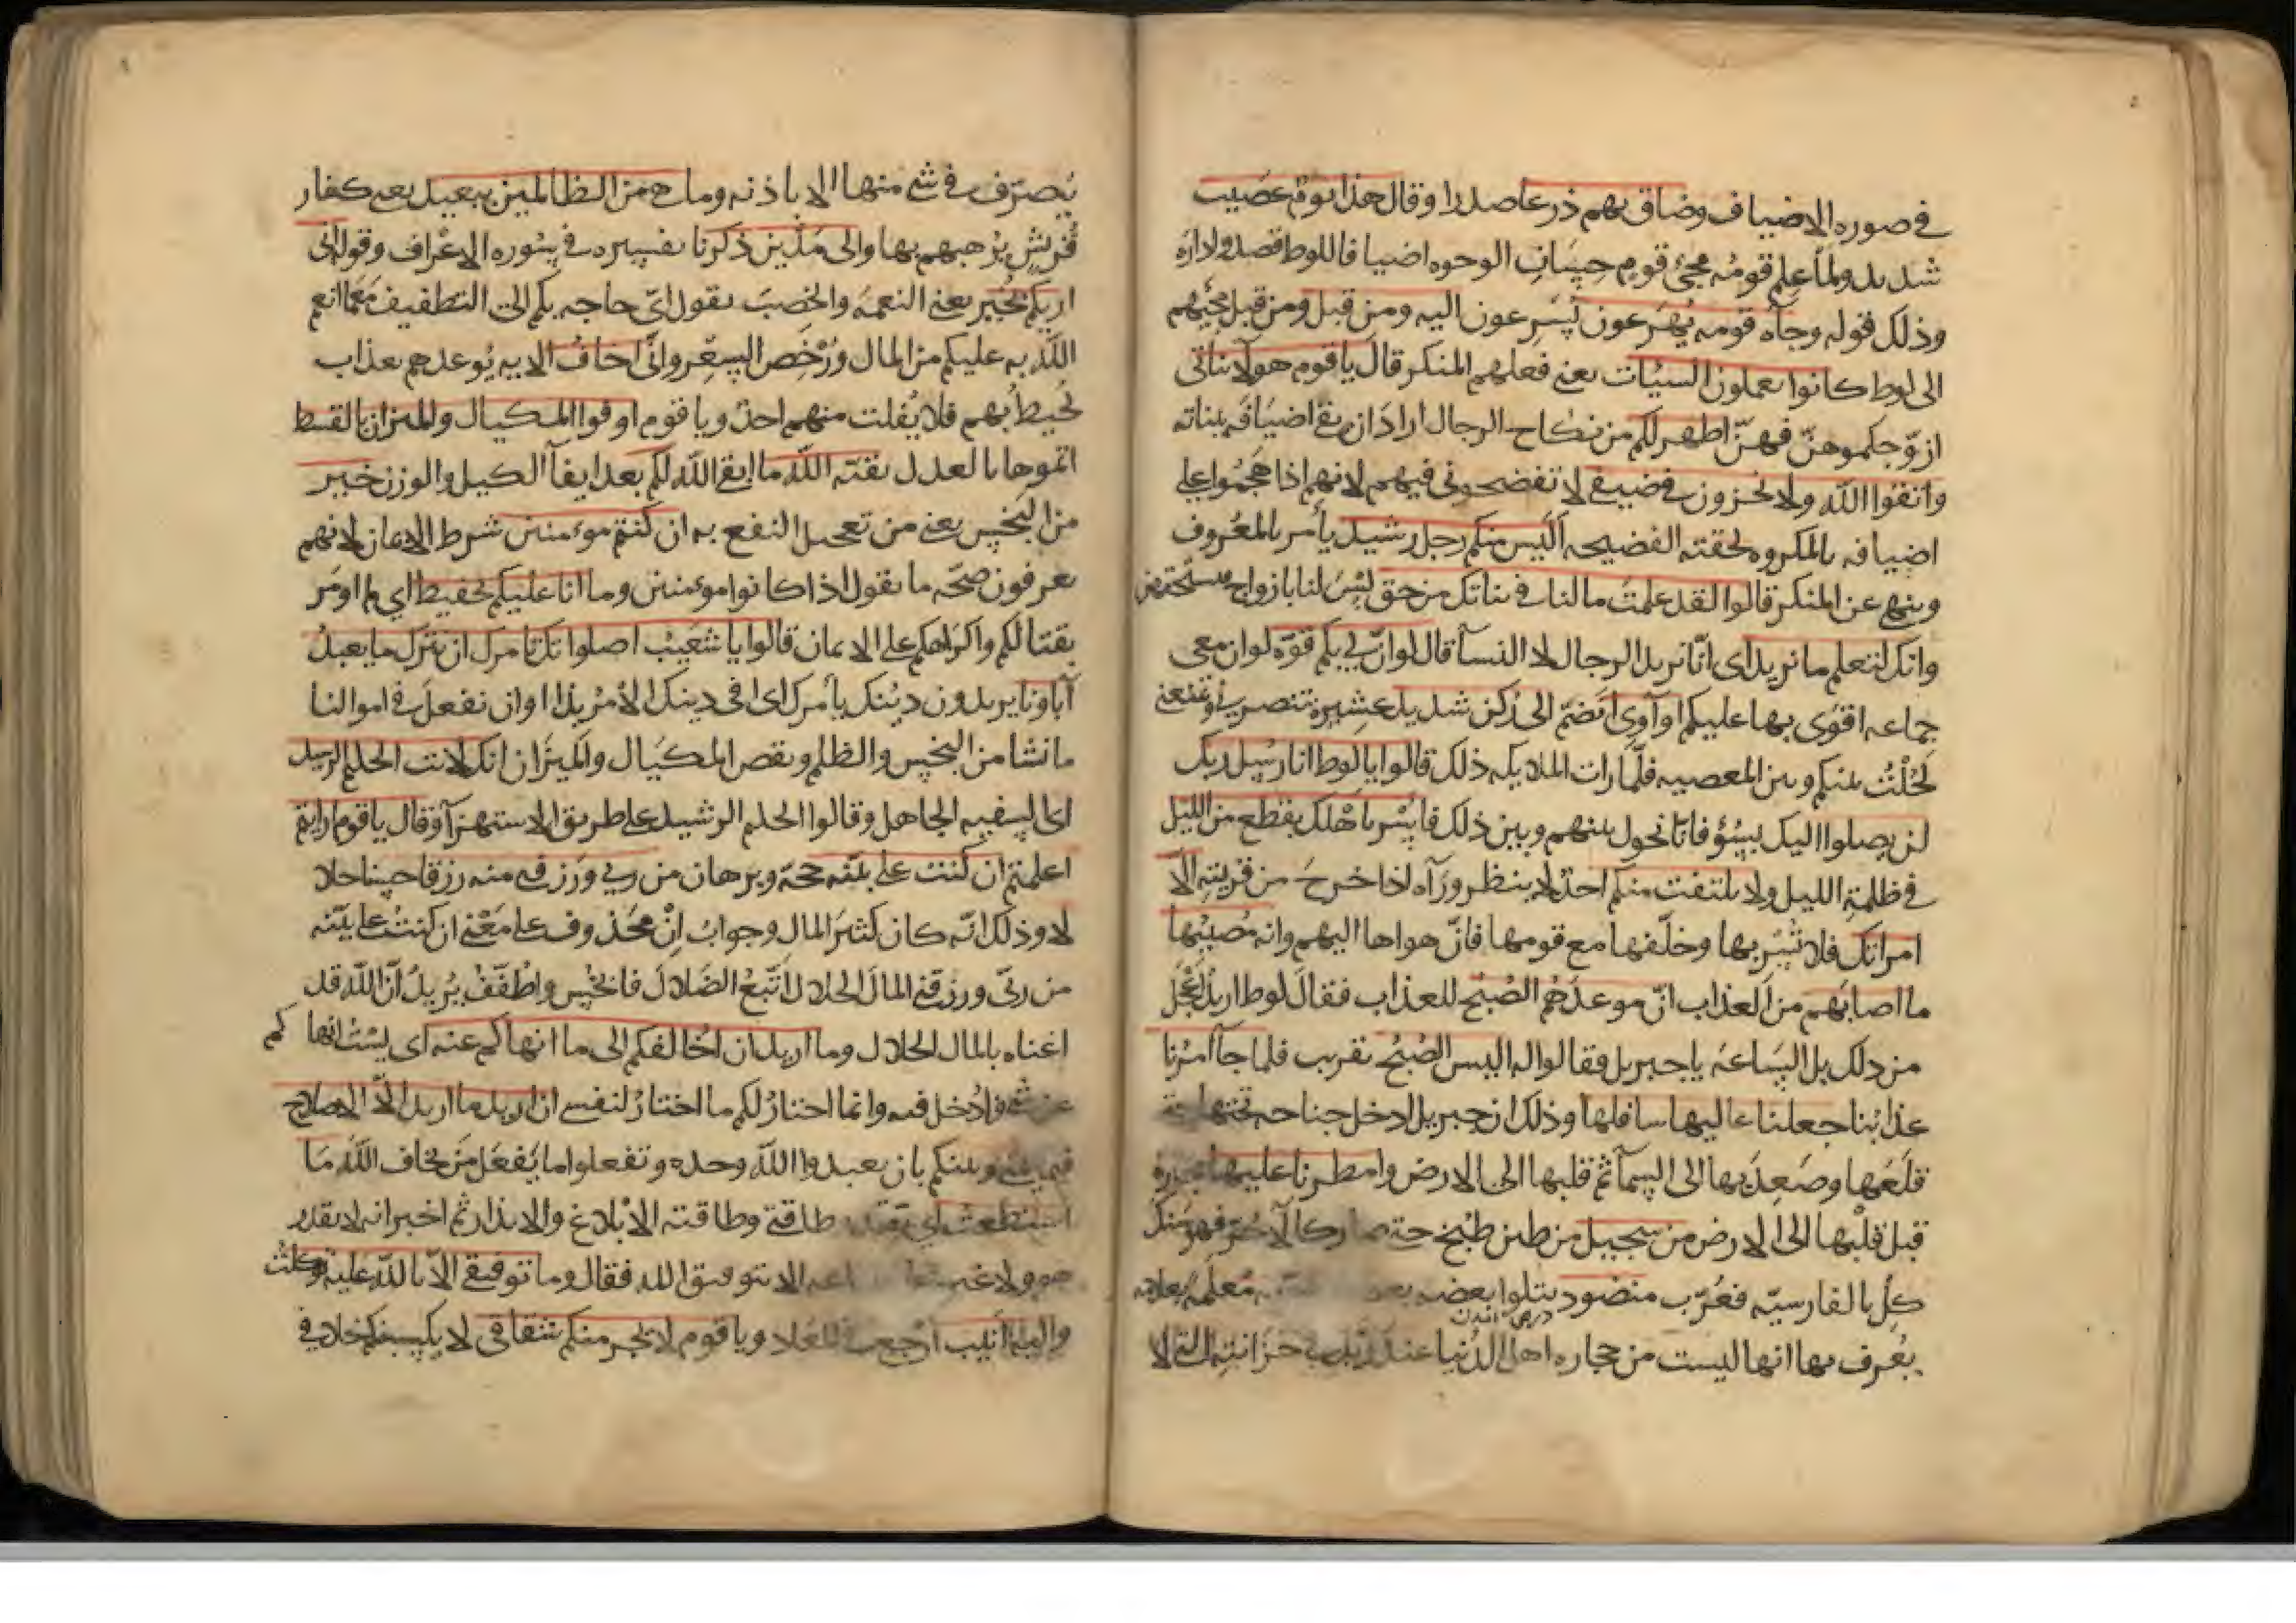 في صوره الاضياف وضاق بهم ذرعا صدرا وقال هذا يوم عصيب
شديد ولما علم قومه مجئ قوم حسان الوجوه اضيافا للوط قصدوا داره
وذلك قوله وجاه قومه يهرعون يسرعون اليه ومن قبل ومن قبل مجيهم
الى لوط كانوا يعملون السيئات يعني فعلهم المنكر قال يا قوم هولا بناتي
ازوجكموهن فهن اطهر لكم من نكاح الرجال اراد ان يقي اضيافه ببناته
واتقوا الله ولا تخزون في ضيفي لا تفضحوني فيهم لانهم اذا هجموا على
اضيافه بالمكروه لحقته الفضيحه اليس منكم رجل رشيد يأمر بالمعروف
وينهى عن المنكر قالوا لقد علمت ما لنا في بناتك من حق ليس لنا بازواج
وانك لتعلم ما نريد اى انا نريد الرجال لا النسآ قال لو ان لي بكم قوة لو ان معى
جماعه اقوى بها عليكم او آوى انضم الى ركن شديد عشيرة تنصرني وتمنعني
لحلت بينكم وبين المعصيه فلما رات الملايكه ذلك قالوا يا لوط انا رسل ربك
لن يصلوا اليك بسوء فانا نحول بينهم وبين ذلك فاسر باهلك بقطع من الليل
في ظلمة الليل ولا يلتفت منكم احد لا ينظر ورآه اذا خرج من قريته الا
امراتك فلا تسر بها وخلفها مع قومها فان هواها اليهم وانه مصيبها
ما اصابهم من العذاب ان موعدهم الصبح للعذاب فقال لوط اريد اعجل
من ذلك بل الساعة يا جبريل فقالوا له اليس الصبح بقريب فلما جآ امرنا
عذابنا جعلنا عاليها سافلها وذلك ان جبريل ادخل جناحه تحتها حتى
قلعها وصعد بها الى السمآ ثم قلبها الى الارض وامطرنا عليها حجارة
قبل قلبها الى الارض من سجيل من طين طبخ حتى صار كالآجر فهو سنك
كل بالفارسيه فعرب منضود يتلوا بعضه بعضا مسومه معلمه بعلامه
يعرف بها انها ليست من حجاره اهل الدنيا عند ربك في خزانته التي لا
يتصرف في شي منها الا باذنه وما هي من الظالمين ببعيد يعني كفار
قريش يرهبهم بها والى مدين ذكرنا تفسيره في سوره الاعراف وقوله اني
اريكم بخير يعني النعمه والخصب يقول اى حاجه بكم الى التطفيف مع ما انعم
الله به عليكم من المال ورخص السعر واني اخاف الايه يوعدهم بعذاب
يحيط بهم فلا يفلت منهم احد ويا قوم اوفوا المكيال والميزان بالقسط
اتموها بالعدل بقيت الله ما ابقى الله لكم بعد ايفآ الكيل والوزن خير
من البخس يعني من تعجيل النفع به ان كنتم موءمنين شرط الايمان لانهم
يعرفون صحه ما يقول اذا كانوا موءمنين وما انا عليكم بحفيظ اي لم اومر
بقتالكم واكراهكم على الايمان قالوا يا شعيب اصلواتك تامرك ان نترك ما يعبد
آباونا يريدون دينك يأمرك اى في دينك الامر بذا او ان نفعل في اموالنا
ما نشا من البخس والظلم ونقص المكيال والميزان انك لانت الحليم الرشيد
اى السفيه الجاهل وقالوا الحليم الرشيد على طريق الاستهزآ وقال يا قوم ارايتم
اعلمتم ان كنت على بينه حجة وبرهان من ربي ورزقني منه رزقا حسنا حلا
لا وذلك انه كان كثير المال وجواب ان محذوف على معنى ان كنت على بينه
من ربى ورزقني المال الحلال اتبع الضلال فابخس واطفف يريد ان الله قد
اغناه بالمال الحلال وما اريد ان اخالفكم الى ما انهاكم عنه اى لست انهاكم
عن شي فادخل فيه وانما اختار لكم ما اختار لنفسي ان اريد ما اريد الا الاصلاح
فيما بيني وبينكم بان يعبدوا الله وحده وتفعلوا ما يفعل من يخاف الله ما
استطعت اي بقدر طاقتي وطاقته الابلاغ والانذار ثم اخبر انه لا يقدر
هو ولا غيره الا بتوفيق الله فقال وما توفيقي الا بالله عليه توكلت
واليه انيب ارجع في المعاد ويا قوم لا يجرمنكم شقاقي لا يكسبنكم خلافي